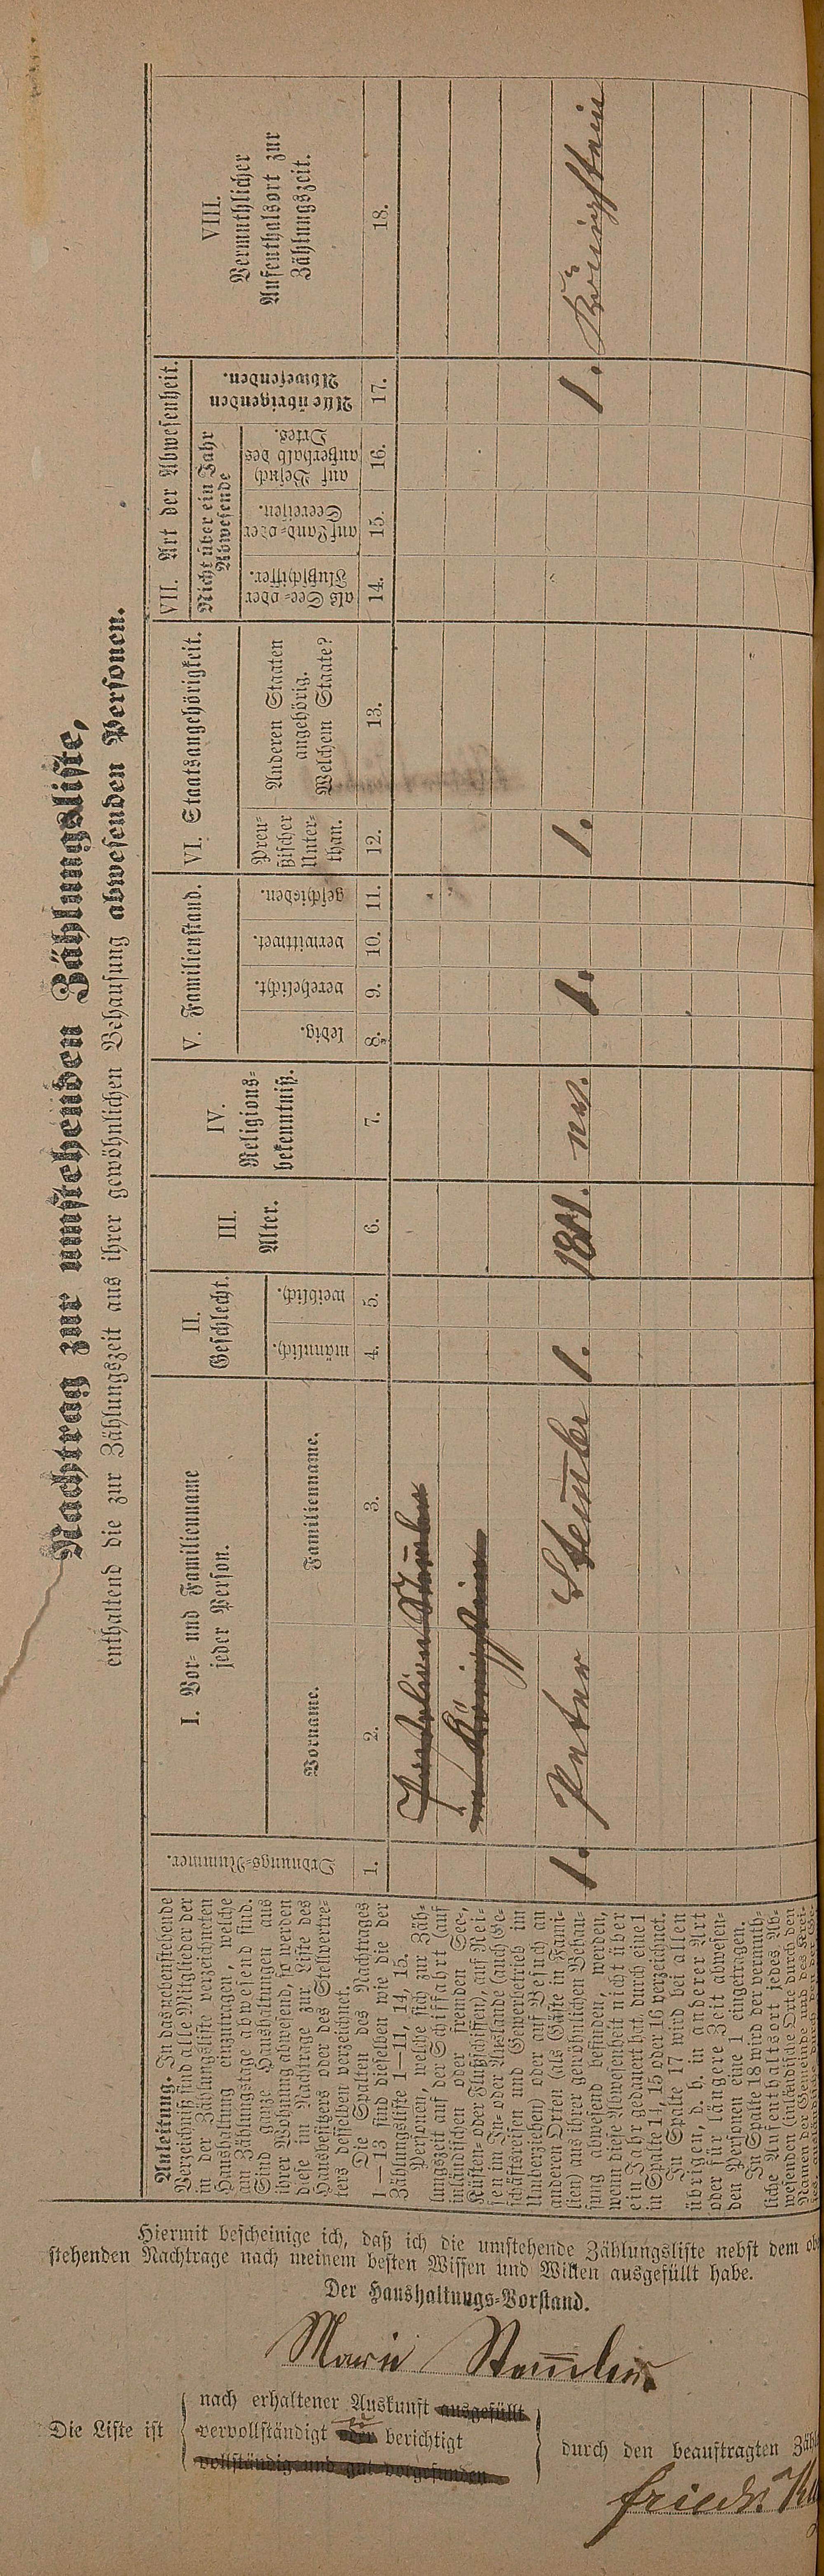 Nachtrag zur umstehenden Zählungsliste,
enthaltend die zur Zählungszeit aus ihrer gewöhnlichen Behausung abwesenden Personen.
Anleitung. In das nebenstehende
Verzeichniß sind alle Mitglieder der
in der Zählungsliste verzeichneten
Haushaltung einzutragen, welche
am Zählungstage abwesend sind.
Sind ganze Haushaltungen aus
ihrer Wohnung abwesend, so werden
diese im Nachtrage zur Liste des
Hausbesitzers oder des Stellvertre-
ters desselben verzeichnet.
Die Spalten des Nachtrages
1—13 sind dieselben wie die der
Zählungsliste 1—11, 14, 15.
Personen, welche sich zur Zäh-
lungszeit auf der Schiffahrt (auf
inländischen oder fremden See-,
Küsten- oder Flußschiffen), auf Rei-
sen im In- oder Auslande (auch Ge-
schäftsreisen und Gewerbetrieb im
Umherziehen) oder auf Besuch an
anderen Orten (als Gäste in Fami-
lien) aus ihrer gewöhnlichen Behau-
sung abwesend befinden, werden,
wenn diese Abwesenheit nicht über
ein Jahr gedauert hat, durch eine 1
in Spalte 14, 15 oder 16 verzeichnet.
In Spalte 17 wird bei allen
übrigen, d. h. in anderer Art
oder für längere Zeit abwesen-
den Personen eine 1 eingetragen.
In Spalte 18 wird der vermuth-
liche Aufenthaltsort jedes Ab-
wesenden (inländische Orte durch den
Namen der Gemeinde und des Krei-
Ordnungs-Nummer.
I. Vor- und Familienname
jeder Person.
Vorname.
Familienname.
II.
Geschlecht.
männlich.
weiblich.
III.
Alter.
IV.
Religions-
bekenntniß.
V. Familienstand.
ledig.
verehelicht.
verwittwet.
geschieden.
VI. Staatsangehörigkeit.
Preu-
ßischer
Unter-
than.
Anderen Staaten
angehörig.
Welchem Staate?
VII. Art der Abwesenheit.
Nicht über ein Jahr
Abwesende
als See- oder
Flußschiffer.
auf Land- oder
Seereisen.
auf Besuch
außerhalb des
Ortes.
Alle übrigen
Abwesenden.
VIII.
Vermuthlicher
Aufenthalsort zur
Zählungszeit.
1. 2. 3. 4. 5. 6. 7. 8. 9. 10. 11. 12. 13. 14. 15. 16. 17. 18.
in Königstein
1. Peter Stemler 1. 1811. 1. 1. 1. Königstein
Hiermit bescheinige ich, daß ich die umstehende Zählungsliste nebst dem
stehenden Nachtrage nach meinem besten Wissen und Willen ausgefüllt habe.
Der Haushaltungs-Vorstand.
Marie
Die Liste ist
nach erhaltener Auskunft ausgefüllt
vervollständigt oder berichtigt
vollständig und gut vorgefunden
durch den beauftragten
Friedr.